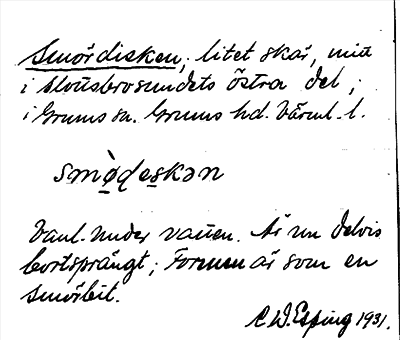 Smördisken, litet skär, mitt
i Slottsbrosundets östra del;
i Grums sn. Grums hd. Värml. l.
smø̀deskən
Vanl. under vatten. Är nu delvis
bortsprängt; Formen är som en
smörbit.
C. W. Esping 1931.